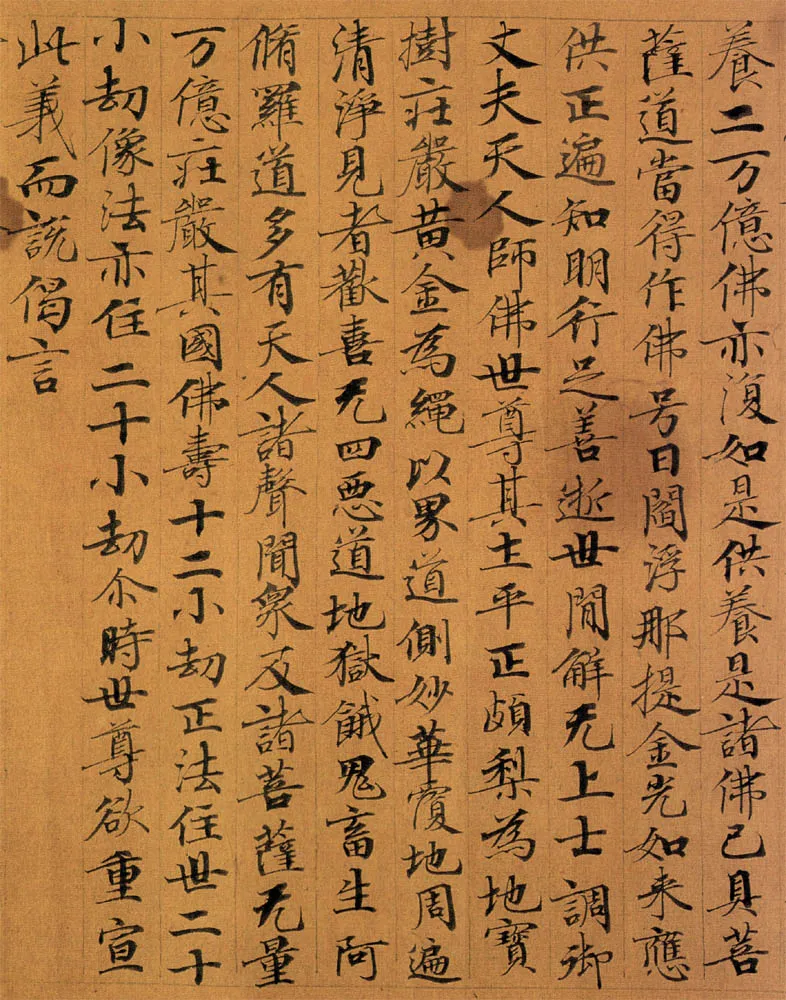 養二万億佛亦復如是供養是諸佛已具菩
薩道當得作佛号曰閻浮那提金光如来應
供正遍知明行足善逝世間解无上士調御
丈夫天人師佛世尊其土平正頗梨為地寶
樹莊嚴黃金為繩以界道側妙華覆地周遍
清淨見者歡喜无四惡道地獄餓鬼畜生阿
脩羅道多有天人諸聲聞衆及諸菩薩无量
万億莊嚴其國佛壽十二小劫正法住世二十
小劫像法亦住二十小劫尒時世尊欲重宣
此義而說偈言